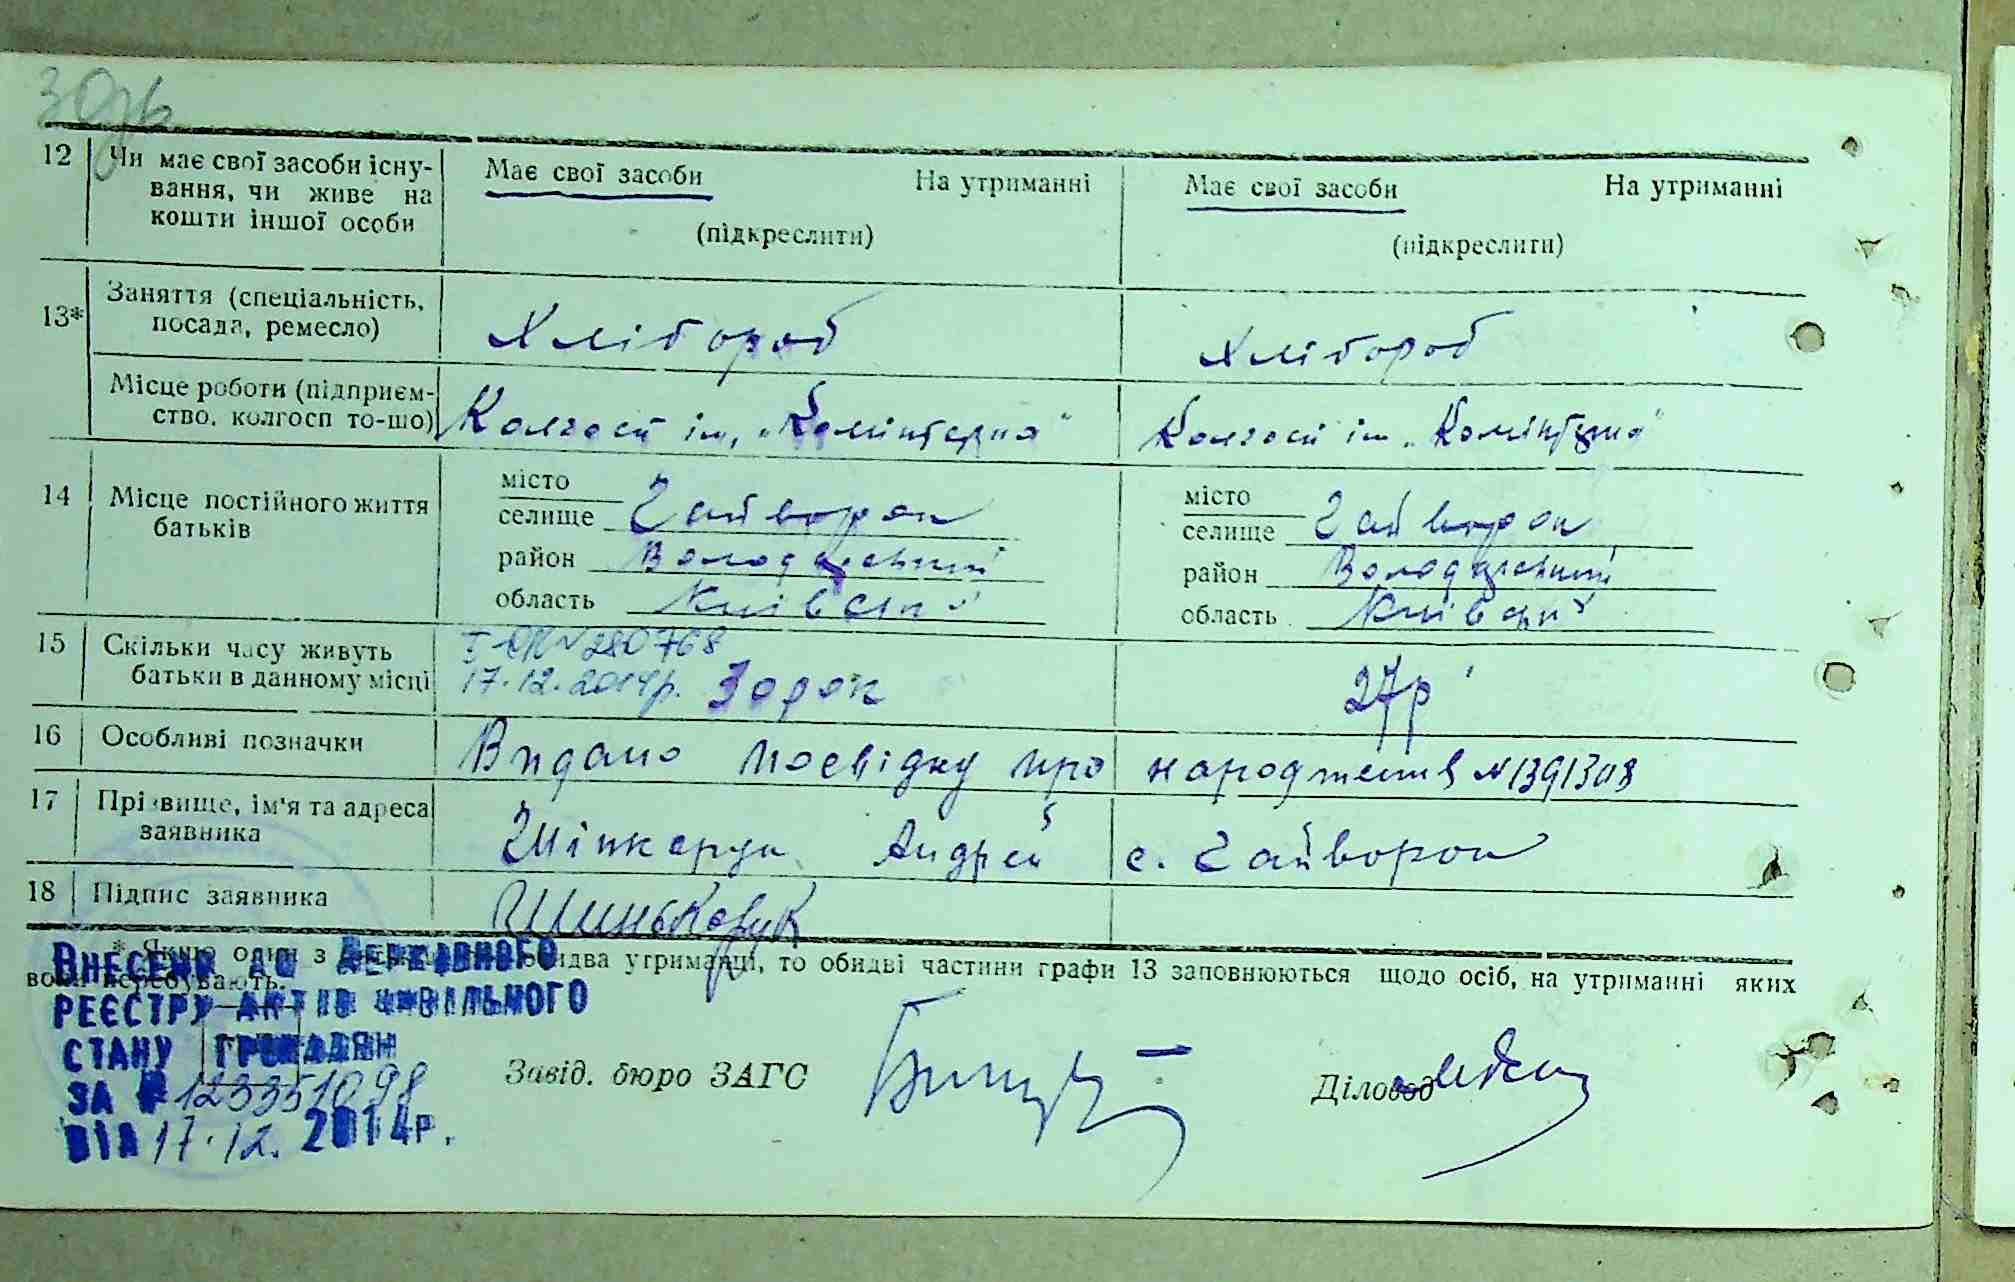 12 Чи має свої засоби існу-
вання, чи живе на
кошти іншої особи
Має свої засоби На утриманні
(підкреслити)
Має свої засоби На утриманні
(підкреслити)
13* Заняття (спеціальність,
посада, ремесло)
Хлібороб
Хлібороб
Місце роботи (підприєм-
ство, колгосп то-шо)
Колгосп ім. „Комінтерна"
Колгосп ім „Комінтерна"
14 Місце постійного життя
батьків
місто
селище Гайворон
район Володарський
область Київська
місто
селище Гайворон
район Володарський
область Київська
15 Скільки часу живуть
батьки в данному місці
280768
17.12.2014р. 30 рок
27р
16 Особливі позначки
Видано посвідку про народження №1391308
17 Прізвище, ім'я та адреса
заявника
Шінкарук Андрей с. Гайворон
18 Підпис заявника
Шинькарук
* Якщо один з обидва утриманці, то обидві частини графи 13 заповнюються щодо осіб, на утриманні яких
вони перебувають.
Внесено до Державного
реєстру актів цивільного
стану громадян
за № 1233351098
від 17.12. 2014р.
Завід. бюро ЗАГС
Діловод